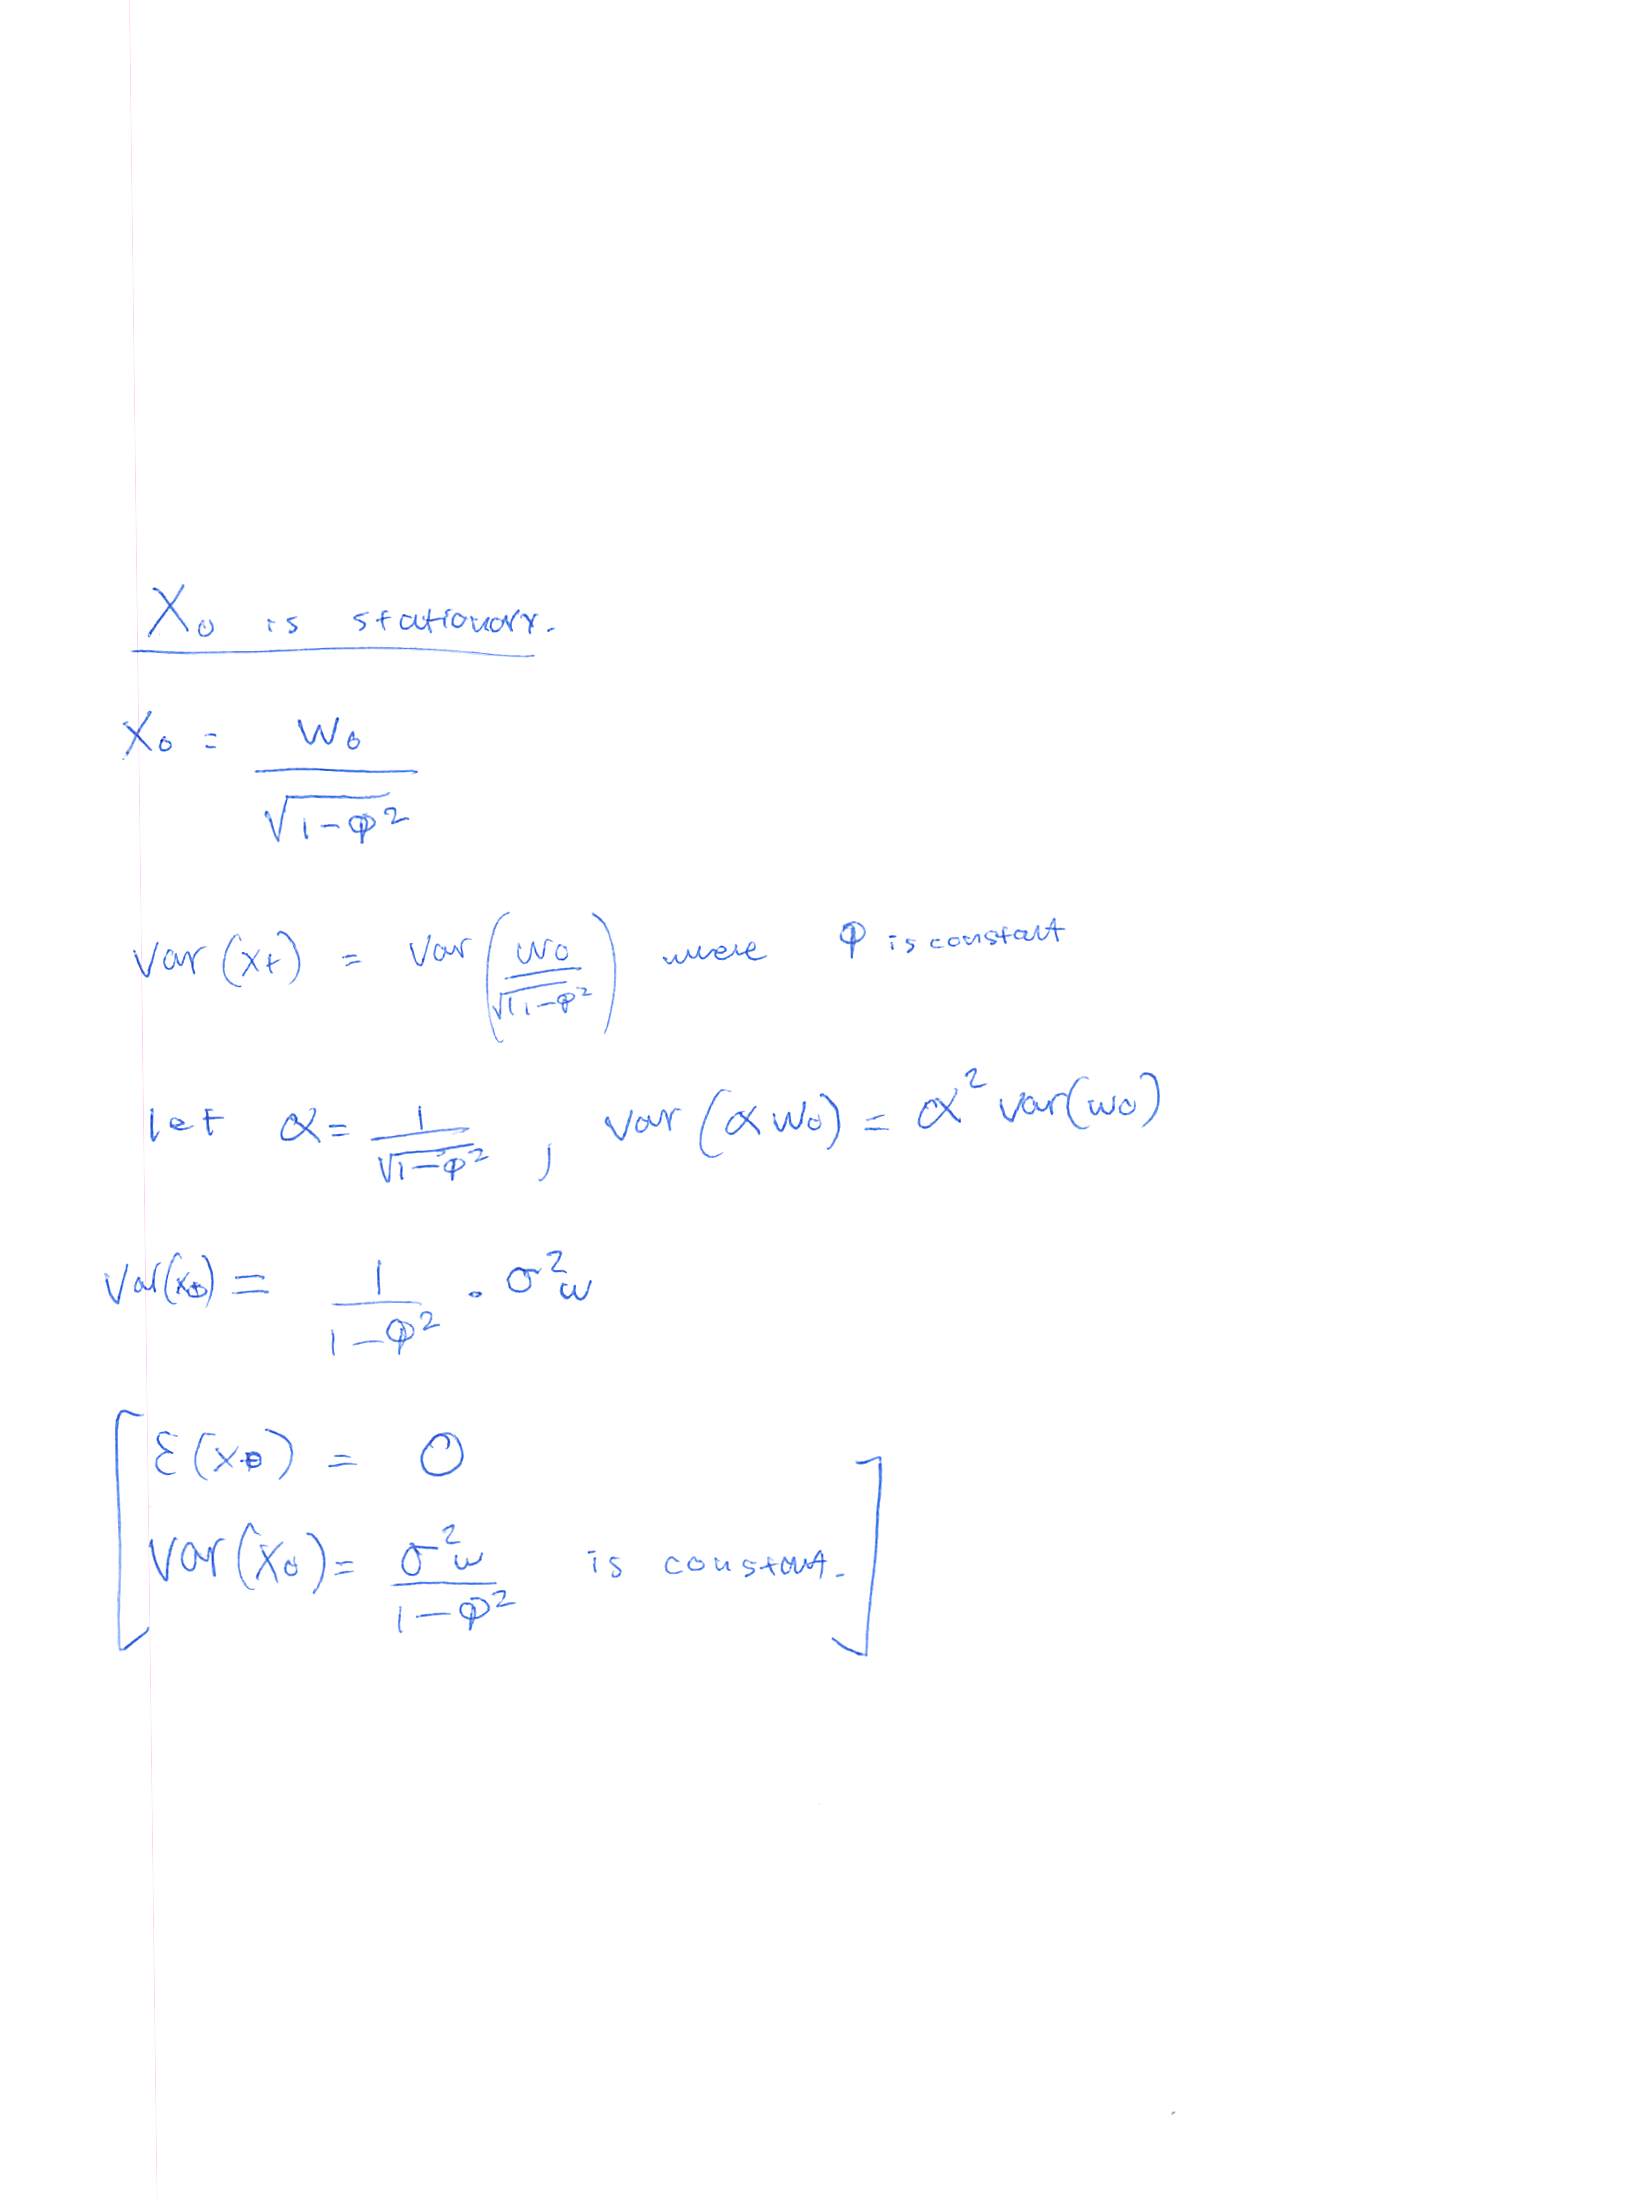 X₀ is stationary.
X₀ = W₀ / √(1-φ²)
Var (Xt) = Var (W₀ / √(1-φ²)) were φ is constant
let α = 1 / √(1-φ²) , Var (α W₀) = α² Var(W₀)
Var(X₀) = 1 / (1-φ²) · σ²w
[ Ɛ(X₀) = 0
Var(X₀) = σ²w / (1-φ²) is constant. ]